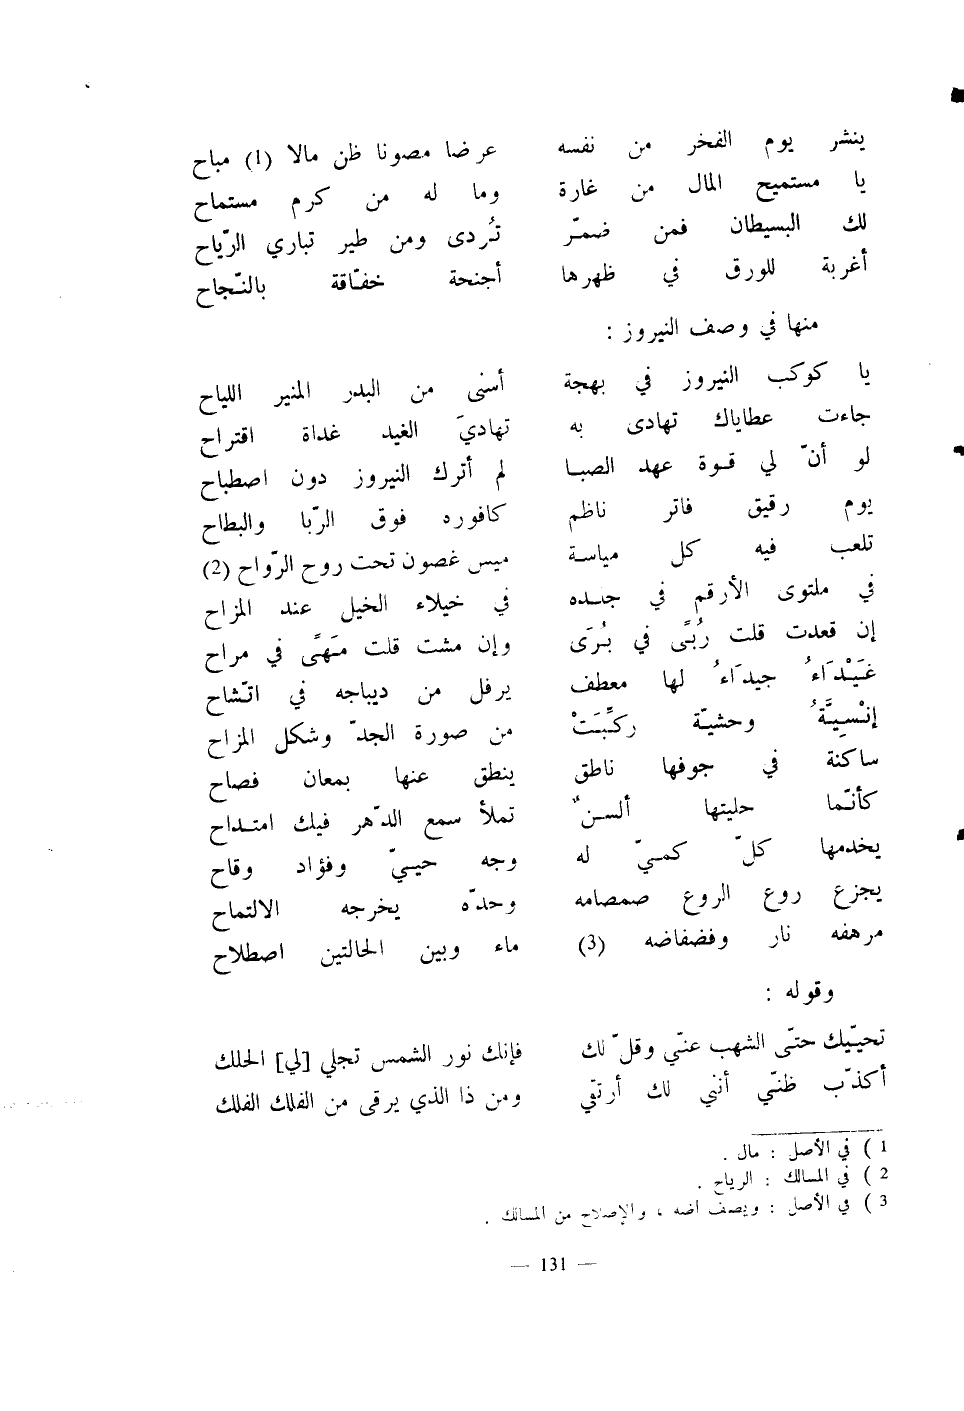 ينشر يوم الفخر من نفسه عرضا مصونا ظن مالا (1) مباح
يا مستميح المال من غارة وما له من كرم مستماح
لك البسيطان فمن ضمّر تُردى ومن طير تباري الرّياح
أغربة للورق في ظهرها أجنحة خفّاقة بالنّجاح
منها في وصف النيروز :
يا كوكب النيروز في بهجة أسنى من البدر المنير اللياح
جاءت عطاياك تهادى به تهاديَ الغيد غداة اقتراح
لو أنّ لي قوة عهد الصبا لم أترك النيروز دون اصطباح
يوم رقيق فاتر ناظم كافوره فوق الرّبا والبطاح
تلعب فيه كل مياسة ميس غصون تحت روح الرّواح (2)
في ملتوى الأرقم في جده في خيلاء الخيل عند المزاح
إن قعدت قلت رُبًى في بُرَى وإن مشت قلت مَهًى في مراح
غَيْدَاءُ جيدَاءُ لها معطف يرفل من ديباجه في اتّشاح
إنْسِيَّةُ وحشيّة ركِّبَتْ من صورة الجدّ وشكل المزاح
ساكنة في جوفها ناطق ينطق عنها بمعان فصاح
كأنّما حليتها ألسنٌ تملأ سمع الدّهر فيك امتداح
يخدمها كلّ كميّ له وجه حييّ وفؤاد وقاح
يجزع روع الروع صمصامه وحدّه يخرجه الالتماح
مرهفه نار وفضفاضه (3) ماء وبين الحالتين اصطلاح
وقوله :
تحيّيك حتّى الشهب عنّي وقلّ لك فإنك نور الشمس تجلي [لي] الحلك
أكذّب ظنّي أنني لك أرتقي ومن ذا الذي يرقى من الفلك الفلك
1 ) في الأصل : مال .
2 ) في المسالك : الرياح .
3 ) في الأصل : ويصف اضه ، والإصلاح من المسالك .
— 131 —